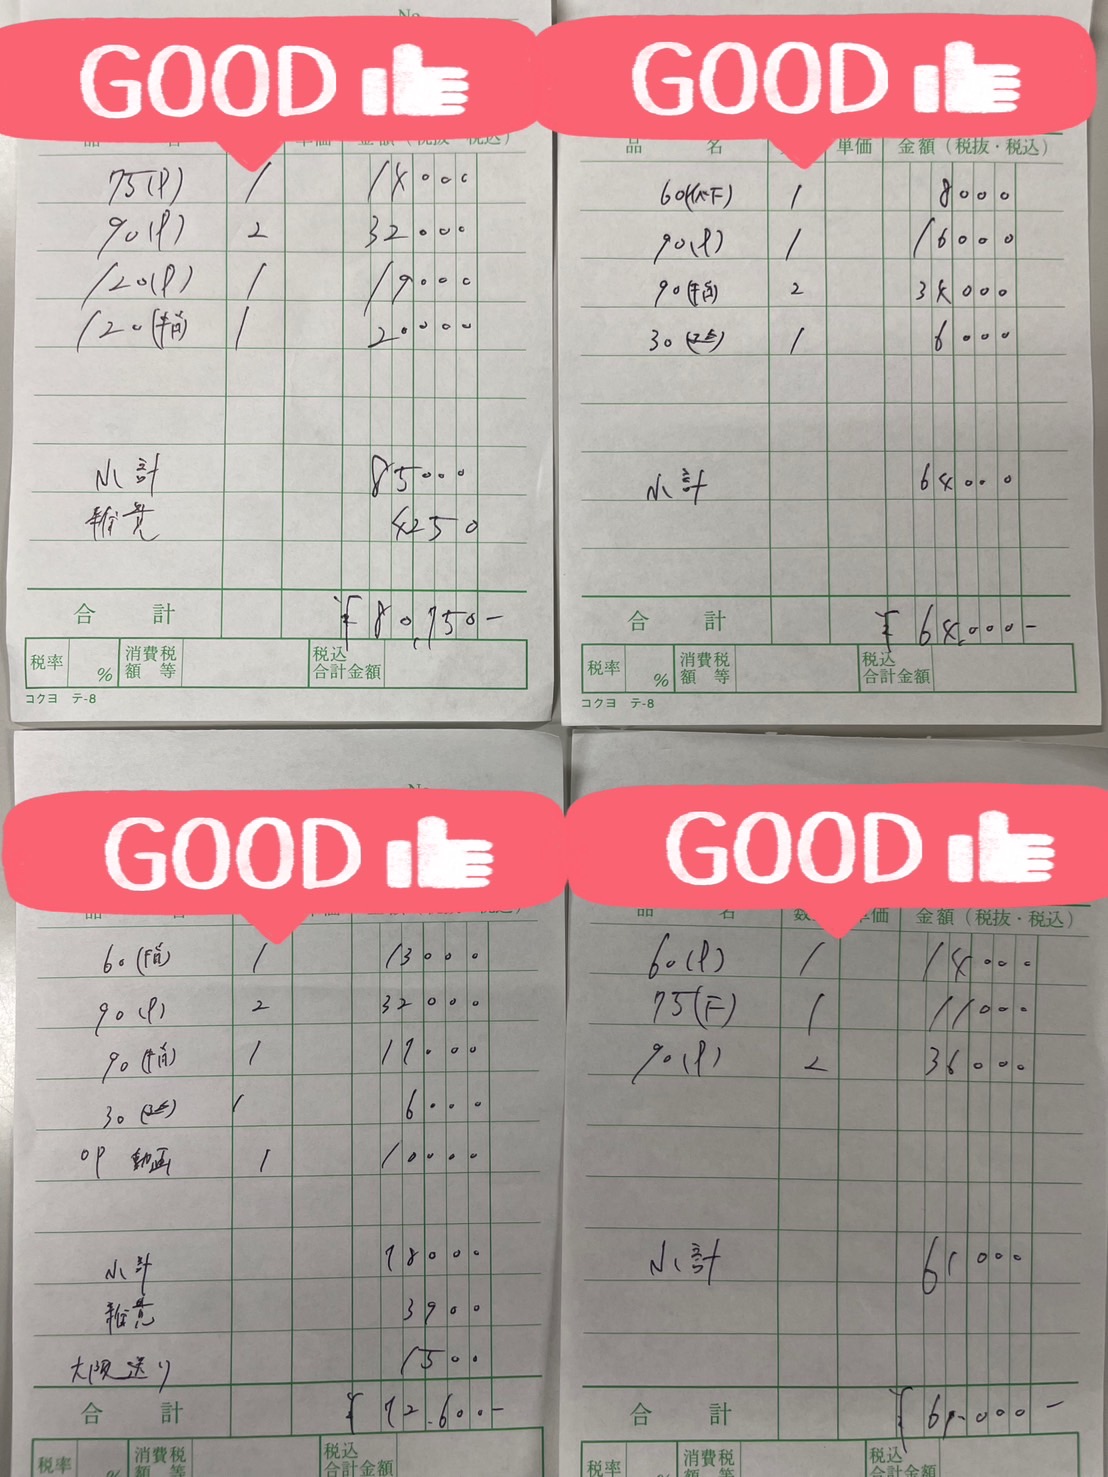 No.
GOOD
品 名 単価 金額（税抜・税込）
75(P) 1 14000
90(P) 2 32000
120(P) 1 19000
120(指) 1 20000
小計 85000
雑費 4250
合計 ¥80,750-
税率 % 消費税額等 税込合計金額
コクヨ テ-8
GOOD
品 名 単価 金額（税抜・税込）
60 1 8000
90(P) 1 16000
90(指) 2 34000
30 1 6000
小計 64000
合計 ¥64,000-
税率 % 消費税額等 税込合計金額
コクヨ テ-8
No.
GOOD
品 名 単価
60 1 13000
90(P) 2 32000
90(指) 1 17000
30 1 6000
OP 動画 1 10000
小計 78000
雑費 3900
大阪送り 1500
合計 ¥72,600-
税率 % 消費税額等 税込合計金額
GOOD
品 名 数 単価 金額（税抜・税込）
60(P) 1 14000
75(F) 1 11000
90(P) 2 36000
小計 61000
合計 ¥61,000-
税率 % 消費税額等 税込合計金額